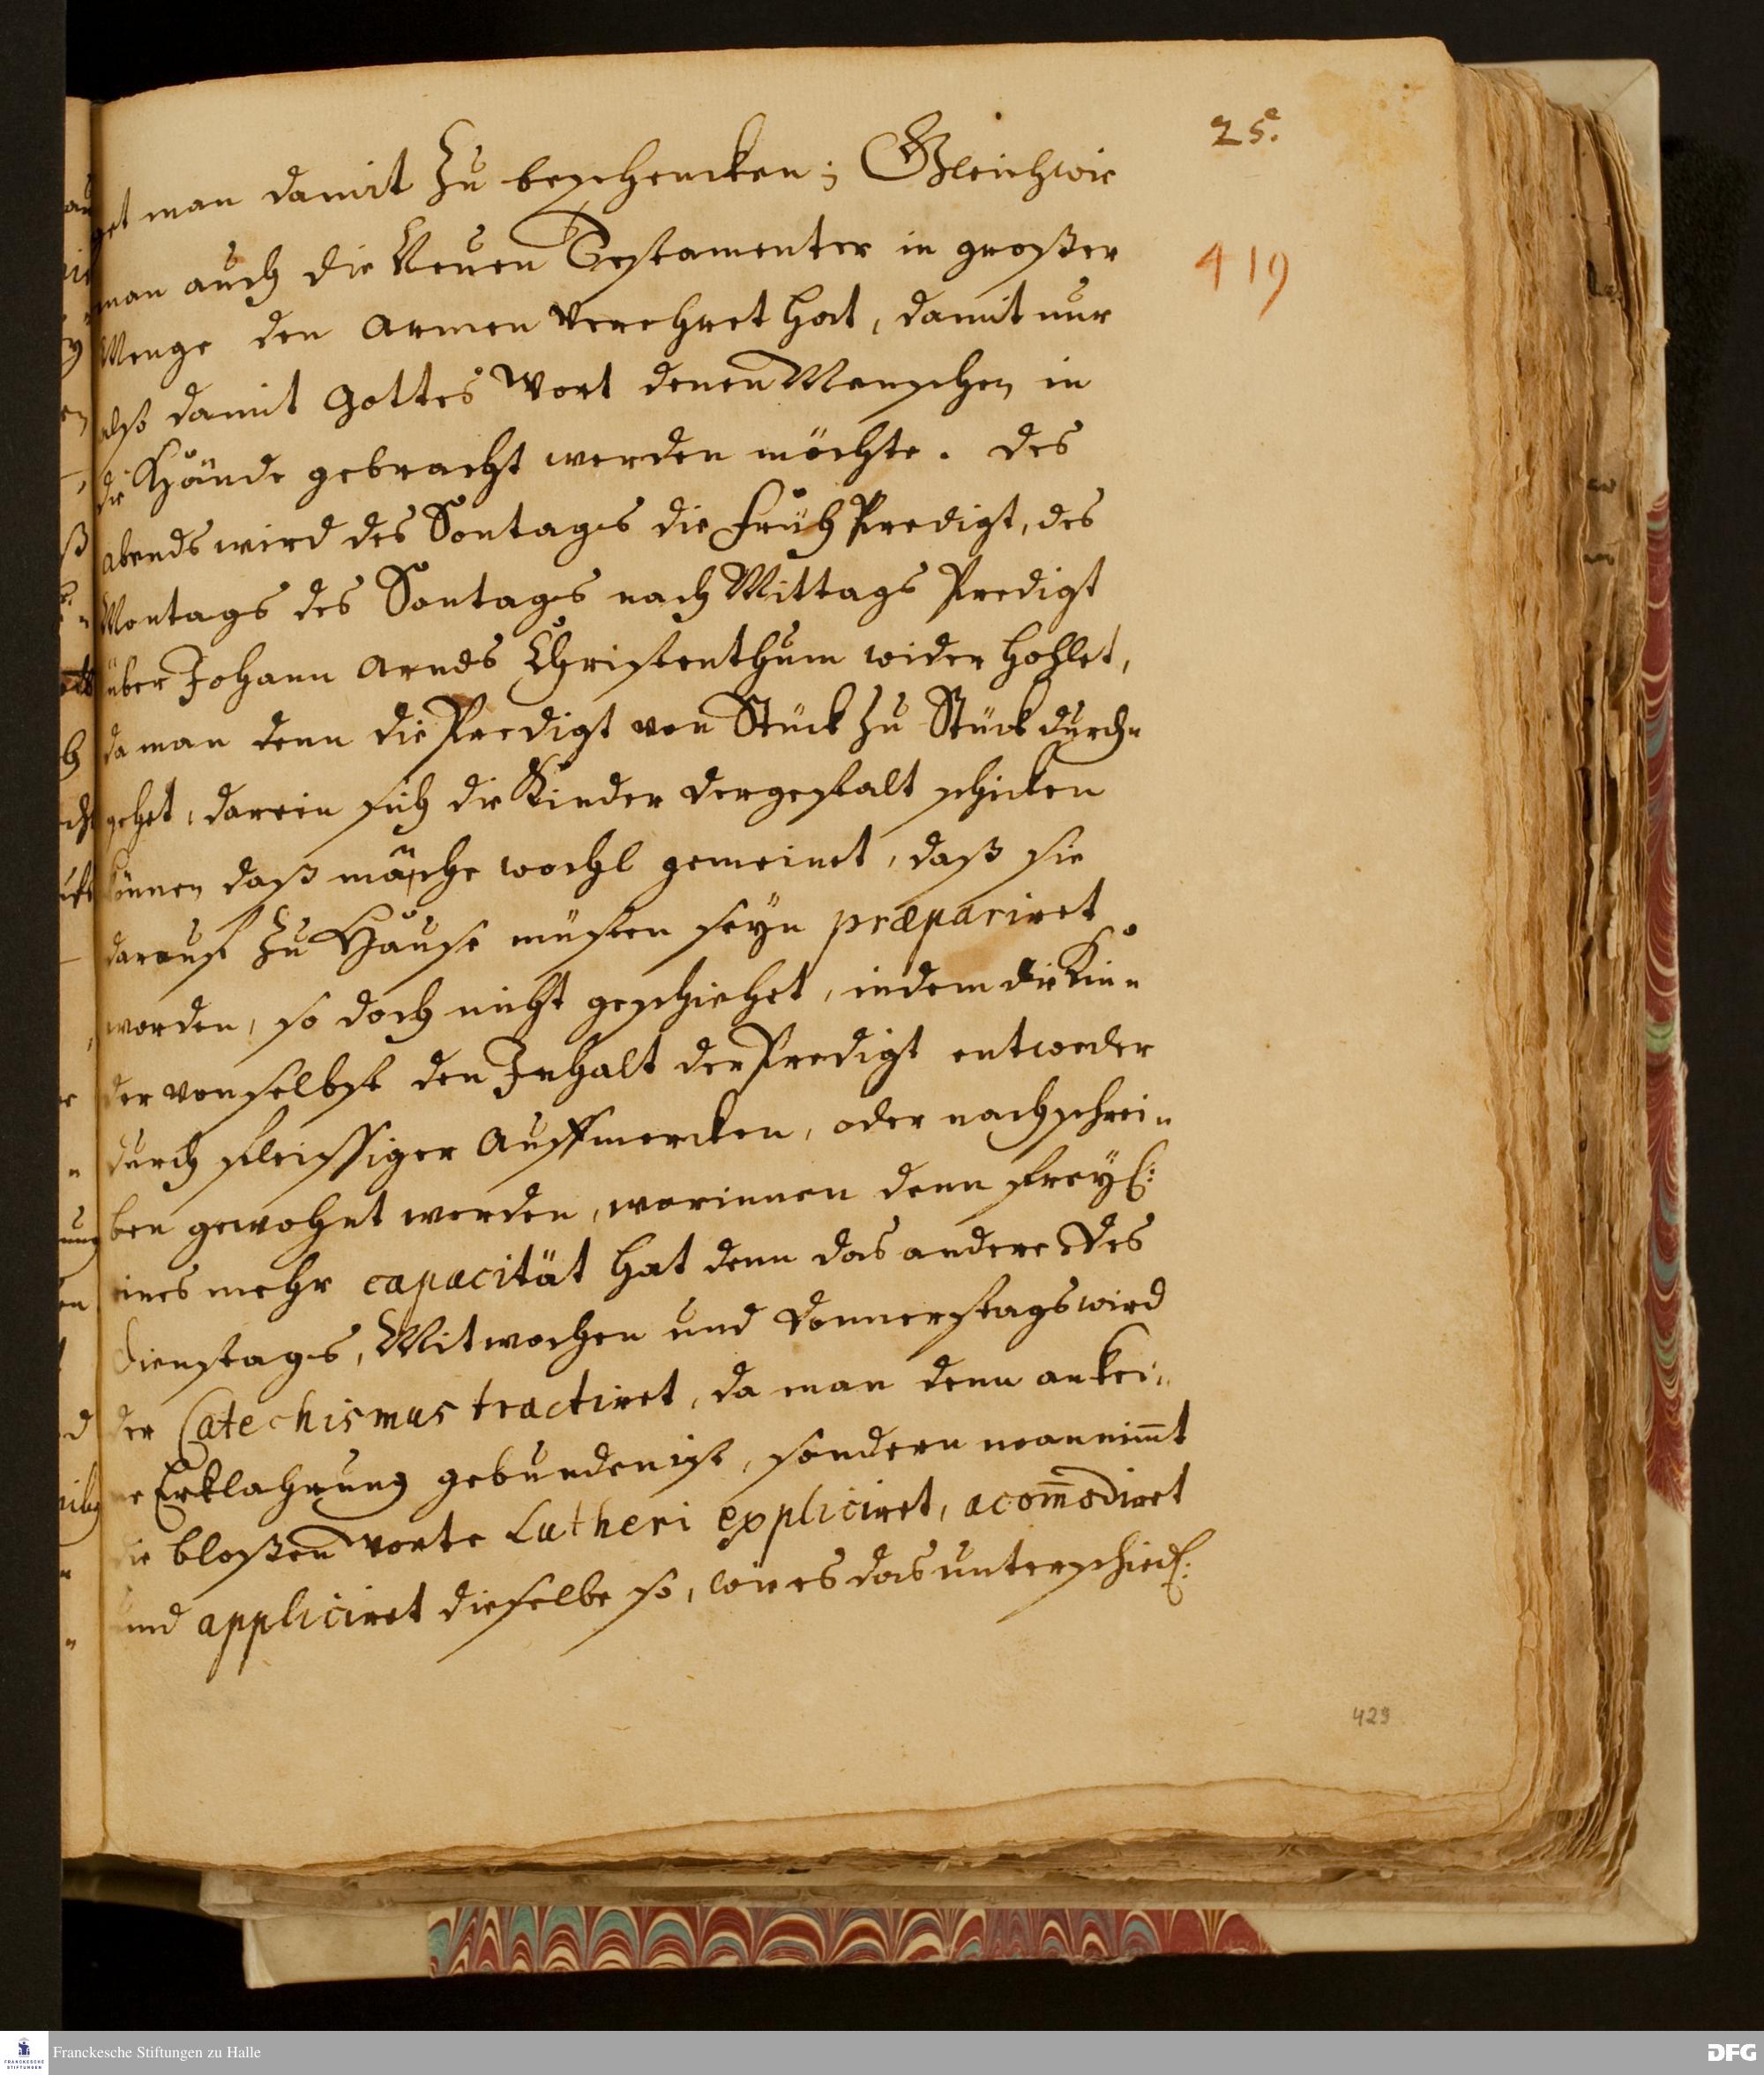 25.
get man damit zu beschencken; Gleichwie
419
man auch die Neuen Testamenter in großer
Menge den Armen verehret hat, damit nur
also damit Gottes Wort denen Menschen in
die Hände gebracht werden möchte. Des
abends wird des Sontages die früh Predigt, des
Montages des Sontages nach Mittags Predigt
über Johann Arnds Christenthum wider hohlet,
da man denn die Predigt von Stück zu Stück durch-
gehet, darein sich die Kinder dergestalt schicken
können, daß manche woehl gemeinet, daß sie
darauf zu Hause müsten seyn præpariret
worden, so doch nicht geschiehet, indem die Kin-
der von selbst den Inhalt der Predigt entweder
durch fleissiger Auffmercken, oder nachschrei-
ben gewohnt werden, worinnen denn freyl:
eines mehr capacität hat denn das andere Des
Dienstages, Mitwochen und Donnerstages wird
der Catechismus tractiret, da man denn an kei-
ne Erklahrung gebunden ist, sondern man nim̄t
die bloßen Worte Lutheri expliciret, acom̄odiret
und appliciret dieselbe so, wie es das unterschiedl:
429
Franckesche Stiftungen zu Halle
DFG